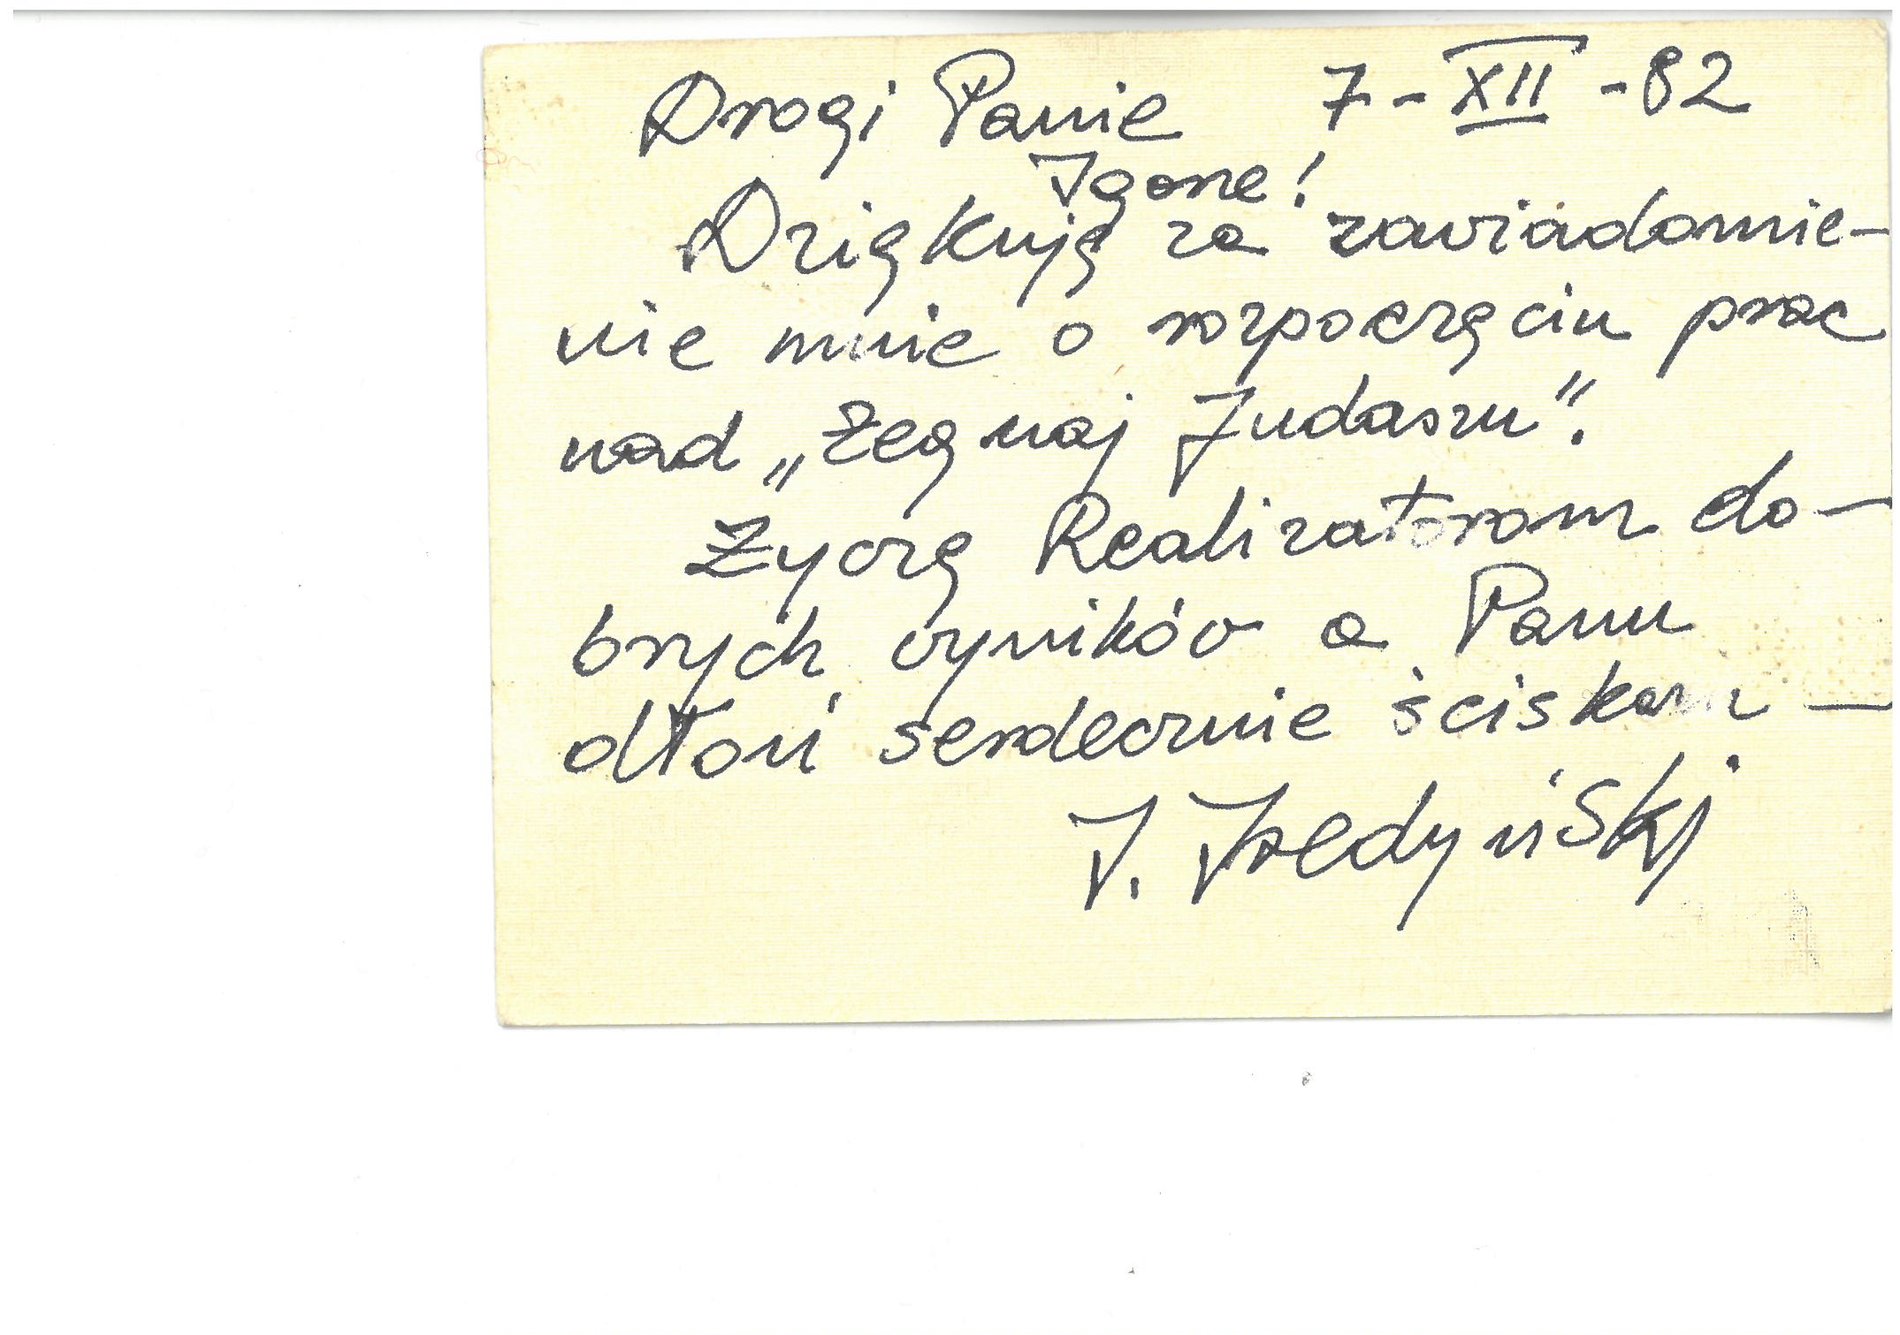 Drogi Panie 7-XII-82
Igorze!
Dziękuję za zawiadomie-
nie mnie o rozpoczęciu prac
nad „Żegnaj Judaszu".
Życzę Realizatorom do-
brych wyników a Panu
dłoń serdecznie ściskam —
I. Iredyński